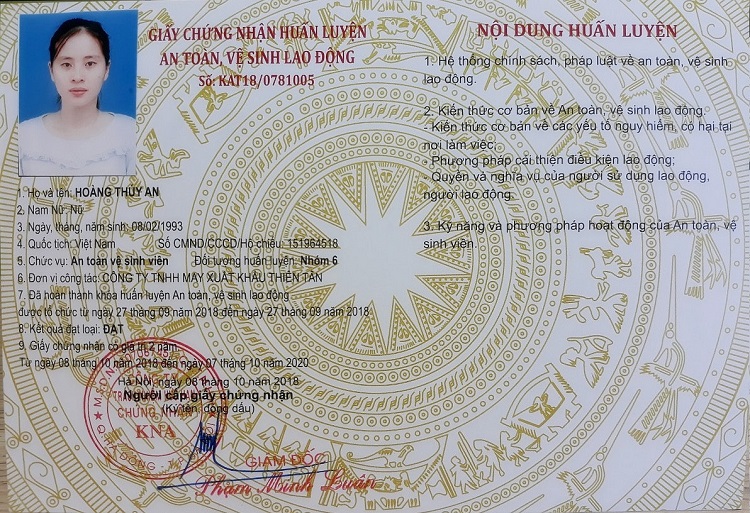 GIẤY CHỨNG NHẬN HUẤN LUYỆN
AN TOÀN, VỆ SINH LAO ĐỘNG
Số: KAT18/0781005
1. Họ và tên: HOÀNG THÙY AN
2. Nam Nữ: Nữ
3. Ngày, tháng, năm sinh: 08/02/1993
4. Quốc tịch: Việt Nam Số CMND/CCCD/Hộ chiếu: 151964518
5. Chức vụ: An toàn vệ sinh viên Đối tượng huấn luyện: Nhóm 6
6. Đơn vị công tác: CÔNG TY TNHH MAY XUẤT KHẨU THIÊN TÂN
7. Đã hoàn thành khóa huấn luyện An toàn, vệ sinh lao động
được tổ chức từ ngày 27 tháng 09 năm 2018 đến ngày 27 tháng 09 năm 2018
8. Kết quả đạt loại: ĐẠT
9. Giấy chứng nhận có giá trị 2 năm.
Từ ngày 08 tháng 10 năm 2018 đến ngày 07 tháng 10 năm 2020
Hà Nội, ngày 08 tháng 10 năm 2018
Người cấp giấy chứng nhận
(Ký tên, đóng dấu)
CHỨNG NHẬN
KNA
GIÁM ĐỐC
Phạm Minh Luân
NỘI DUNG HUẤN LUYỆN
1. Hệ thống chính sách, pháp luật về an toàn, vệ sinh
lao động.
2. Kiến thức cơ bản về An toàn, vệ sinh lao động.
- Kiến thức cơ bản về các yếu tố nguy hiểm, có hại tại
nơi làm việc;
- Phương pháp cải thiện điều kiện lao động;
- Quyền và nghĩa vụ của người sử dụng lao động,
người lao động.
3. Kỹ năng và phương pháp hoạt động của An toàn, vệ
sinh viên.